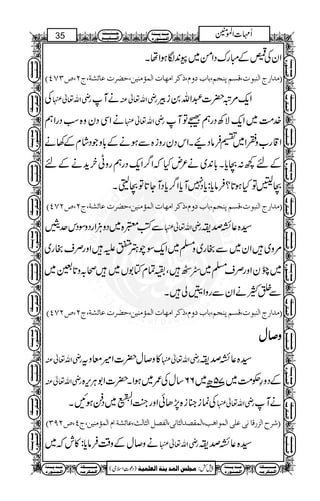 35
اُمہات المؤمنین
ان کی قمیص کے مبارک دامن میں پیوند لگا ہوا تھا۔
(مدارج النبوت، قسم پنجم، باب دوم، ذکر امہات المؤمنین، حضرت عائشۃ، ج۲، ص۴۷۳)
ایک مرتبہ حضرت عبداللہ بن زبیر رضی اللہ تعالیٰ عنہ نے آپ رضی اللہ تعالیٰ عنہا کی
خدمت میں ایک لاکھ درہم بھیجے تو آپ رضی اللہ تعالیٰ عنہا نے اسی دن وہ سب دراہم
اقارب و فقرا میں تقسیم فرما دیئے۔ اس دن روزہ سے ہونے کے باوجود شام کے کھانے
کے لئے کچھ نہ بچایا۔ باندی نے عرض کیا کہ اگر ایک درہم روٹی خریدنے کے لئے
بچا لیتیں تو کیا ہوتا؟ فرمایا: یاد نہیں آیا اگر یاد آجاتا تو بچا لیتی۔
(مدارج النبوت، قسم پنجم، باب دوم، ذکر امہات المؤمنین، حضرت عائشۃ، ج۲، ص۴۷۲)
سیدہ عائشہ صدیقہ رضی اللہ تعالیٰ عنہا سے کتب معتبرہ میں دو ہزار دو سو دس حدیثیں
مروی ہیں ان میں سے بخاری و مسلم میں ایک سو چوہتر متفق علیہ ہیں اور صرف بخاری
میں چوّن اور صرف مسلم میں سڑسٹھ ہیں، بقیہ تمام کتابوں میں ہیں صحابہ و تابعین میں
سے خلق کثیر نے ان سے روایتیں لی ہیں۔
(مدارج النبوت، قسم پنجم، باب دوم، ذکر امہات المؤمنین، حضرت عائشۃ، ج۲، ص۴۷۲)
وصال
سیدہ عائشہ صدیقہ رضی اللہ تعالیٰ عنہا کا وصال حضرت امیر معاویہ رضی اللہ تعالیٰ عنہ
کے دورِ حکومت میں ۵۷ھ میں ۶۶ سال کی عمر میں ہوا۔ حضرت ابو ہریرہ رضی اللہ تعالیٰ عنہ
نے آپ رضی اللہ تعالیٰ عنہا کی نماز جنازہ پڑھائی اور جنت البقیع میں دفن ہوئیں۔
(شرح الزرقانی علی المواھب، المقصد الثانی، الفصل الثالث، عائشۃ ام المؤمنین، ج۴، ص۳۹۲)
سیدہ عائشہ صدیقہ رضی اللہ تعالیٰ عنہا نے وصال کے وقت فرمایا: کاش کہ میں
پیش کش: مجلس المدینۃ العلمیۃ (دعوت اسلامی)